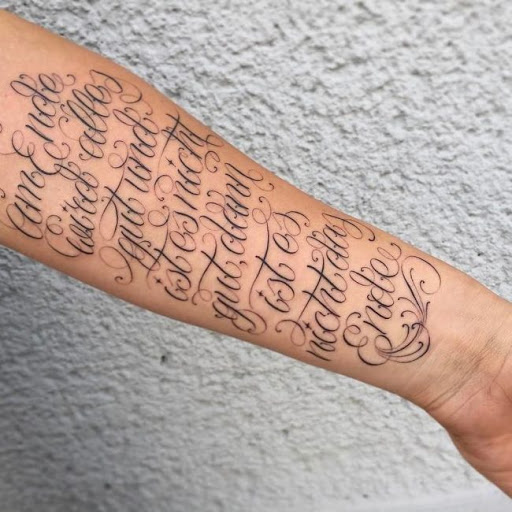 am Ende
wird alles
gut und
ist es nicht
gut dann
ist es
nicht das
Ende